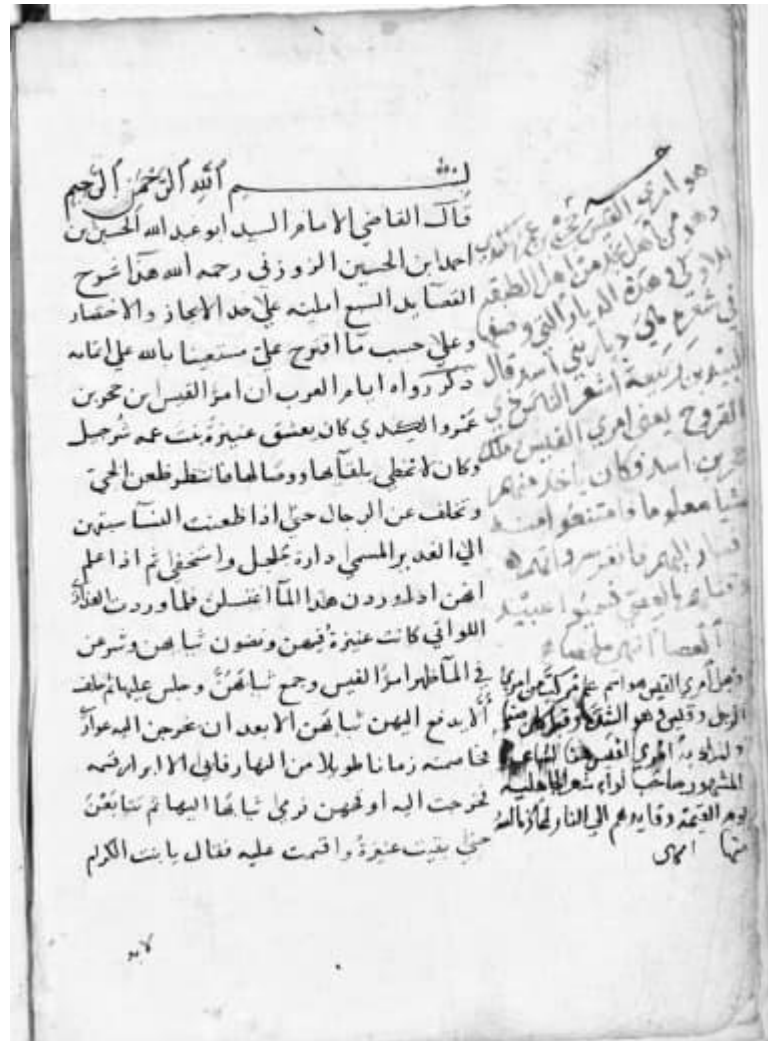 بســـــــم الله الرحمن الرحيم
قال القاضي الامام السيد ابو عبد الله الحسين بن
احمد ابن الحسين الزوزني رحمه الله هذا شرح
القصايد السبع امليته على حد الايجاز والاختصار
وعلى حسب ما اقترح علي مستعينا بالله على اتمامه
ذكر رواه ايام العرب ان امرؤ القيس ابن حجر بن
عمرو الكندي كان يعشق عنيزة بنت عمه شرحبيل
وكان لا يحظى بلقايها ووصالها فانتظر ظعن الحي
وتخلف عن الرجال حتى اذا ظعنت النسا سبقهن
الى الغدير المسمى دارة جلجل واستخفى ثم اذا علم
انهن اذا وردن هذا الما اغتسلن فلما وردت العذارى
اللواتي كانت عنيزة فيهن ونضون ثيابهن وشرعن
في الما ظهر امرؤ القيس وجمع ثيابهن وجلس عليها ثم حلف
ألا يدفع اليهن ثيابهن الا بعد ان يخرجن اليه عوار
فخاصمنه زمانا طويلا من النهار فابى الا ابرار قسمه
فخرجت اليه اوقحهن فرمى ثيابها اليها ثم تتابعن
حتى بقيت عنيزة واقسمت عليه فقال يا بنت الكرام
لا بد
هو امرئ القيس بن حجر بن
وهو من اهل نجد من اهل الطبقة
الاولى وهذه الديار التي وصفها
في شعره هي ديار بني أسد قال
لبيد بن ربيعة أشعر الناس ذي
القروح يعني امرئ القيس ملك
حجر بن اسد فكان ياخذ منهم
شيا معلوما فامتنعوا منه
فسار اليهم
فسموا عبيد
العصا انتهى
وقيل أمرئ القيس هو اسم علم مركب من امرئ
الرجل وقيس وهو الشدة
المشهور صاحب لواء شعر الجاهلية
يوم القيمة وقايدهم الى النار
منها انتهى